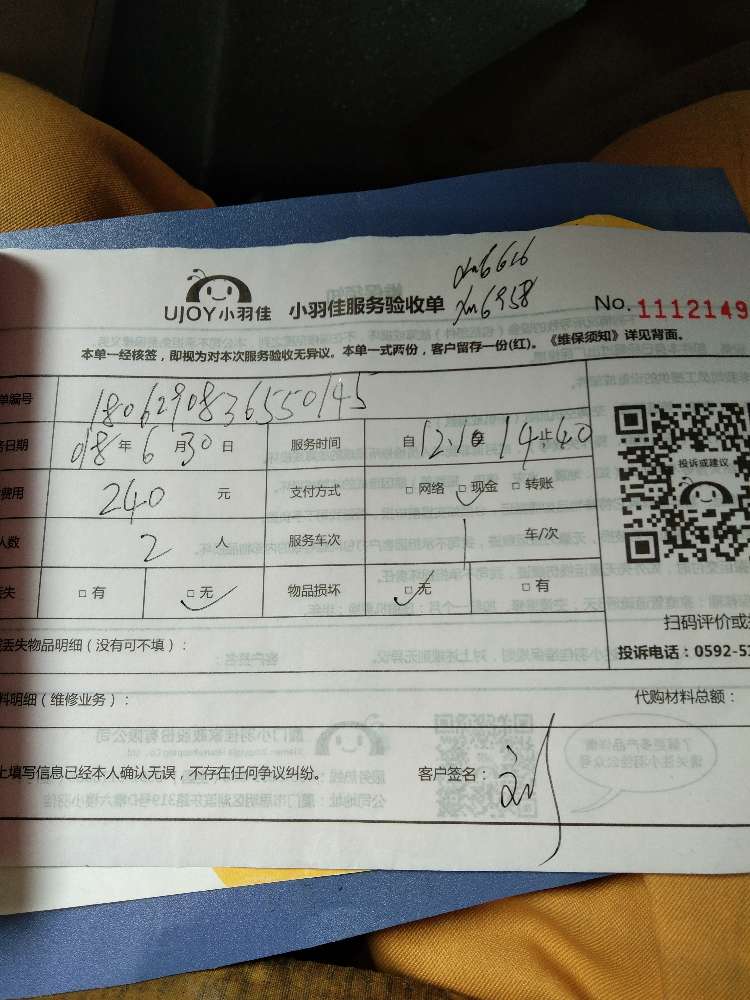 xm6616
UJOY小羽佳 小羽佳服务验收单 xm6958 No. 1112149
本单一经核签，即视为对本次服务验收无异议。本单一式两份，客户留存一份(红)。《维保须知》详见背面。
单编号 1806290836550145
务日期 018年6月30日 服务时间 自12.10 14止40
费用 240 元 支付方式 □ 网络 □ 现金 □ 转账
人数 2 人 服务车次 1 车/次
丢失 □ 有 □ 无 物品损坏 □ 无 □ 有
投诉或建议
扫码评价或投
丢失物品明细（没有可不填）：
投诉电话：0592-51
料明细（维修业务）： 代购材料总额：
上填写信息已经本人确认无误，不存在任何争议纠纷。 客户签名：刘